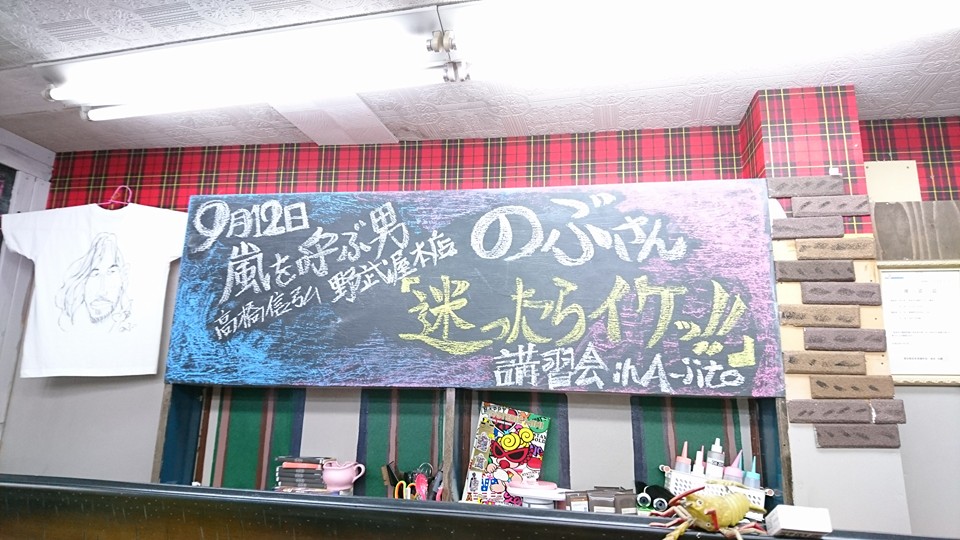 9月12日
嵐を呼ぶ男
高橋信弘 野武屋本店
のぶさん
「迷ったらイケッ!!」
講習会 in A-jito